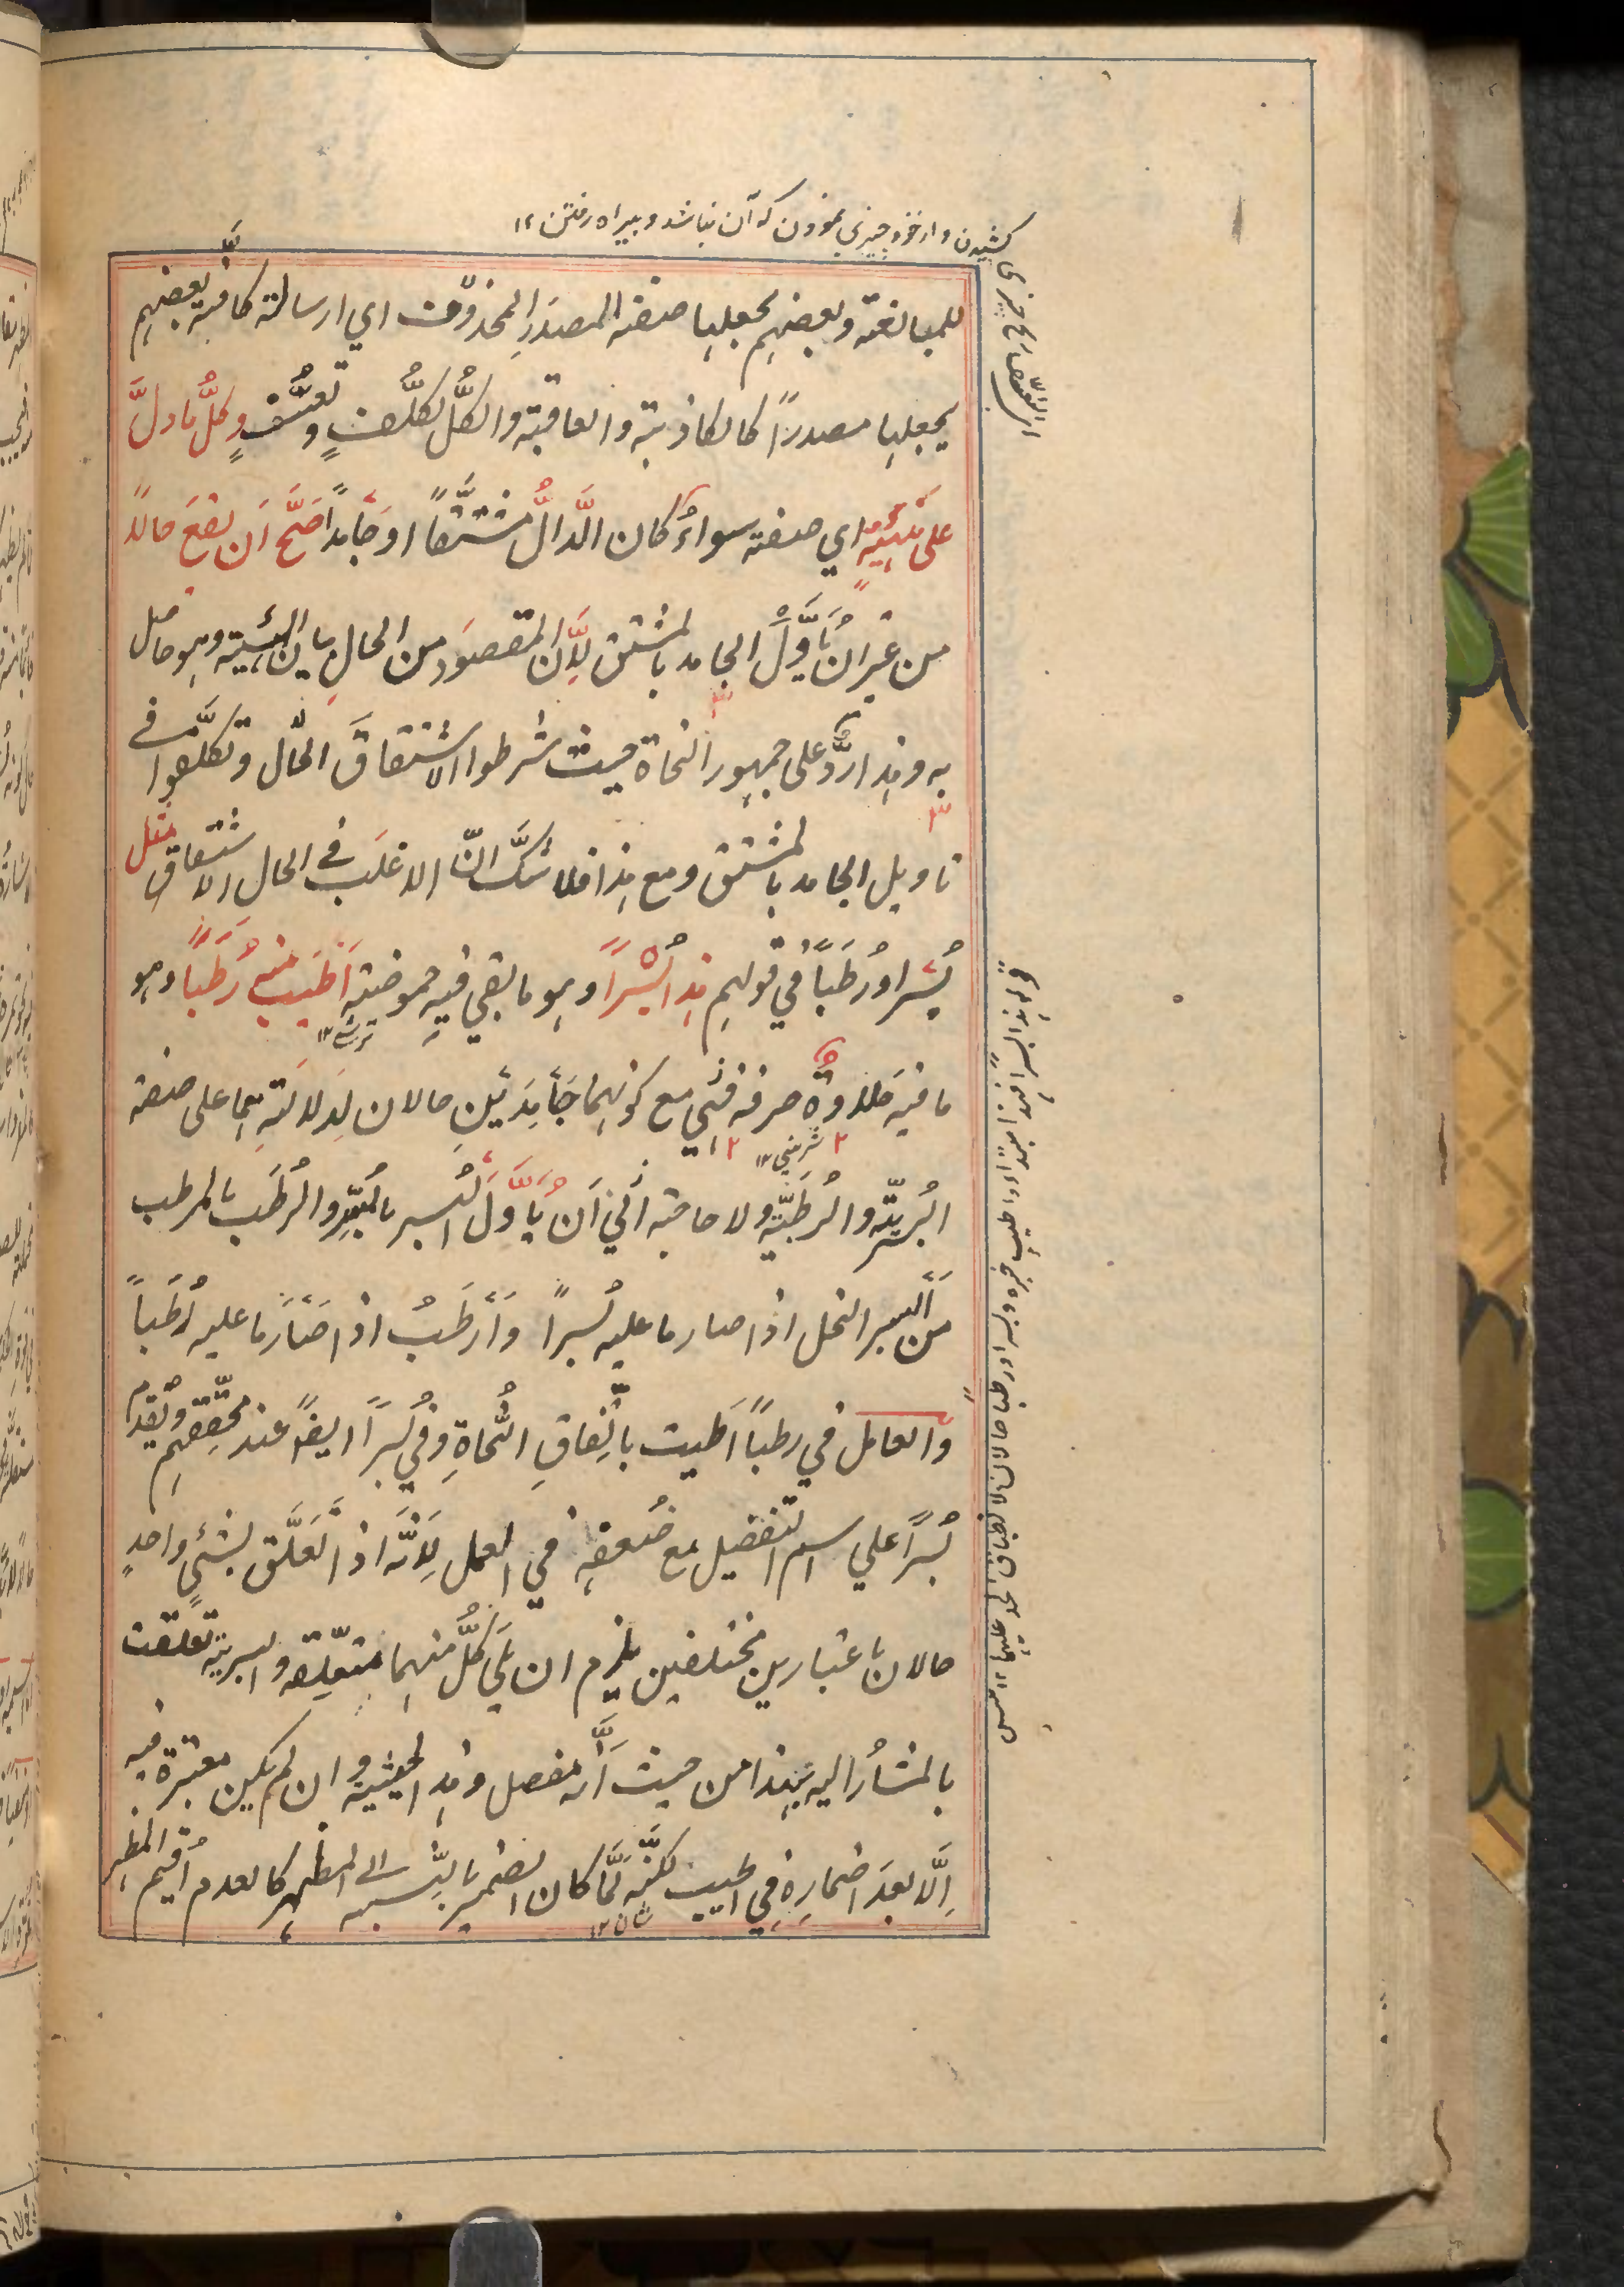 كشيدن و از خود چيزى نمودن كه آن نباشد و بيراه رفتن ١٢
للمبالغة وبعضهم يجعلها صفة المصدر المحذوف اي ارسالة كافة وبعضهم
يجعلها مصدراً كالكاذبة والعاقبة والكلُّ تكلُّف وتعسُّف وكلُّ ما دلَّ
على هيئةٍ اي صفته سواءٌ كان الدَّالُّ مشتقًّا او جامداً صَحَّ اَن يقعَ حالاً
من غير ان يُأَوَّلَ الجامد بالمشتق لِاَنَّ المقصودَ من الحالِ بيان الهيئية وهو حاصل
به وهذا ردٌّ على جمهور النحاة حيث شرطوا الاشتقاقَ الحال وتكلَّفوا في
تاويل الجامد بالمشتق ومع هذا فلا شكَّ انّ الاغلَب في الحال الاشتقاق مثل
بُسْراً ورُطَباً في قولهم هذا بُسْراً وهو ما بقي فيه حموضته اَطْيَبُ منه رُطَباً وهو
ترشى ١٢
ما فيه حلاوةٌ صرفة فهي مع كونهما جَامِدَيْنِ حالان لِدلالتهِما على صفة
شيرينى ١٢
البُسريّة والرُطَبيّة ولا حاجة الي اَن يُأَوَّلَ البُسر بالمُبسِر والرُطَب بالمرطب
من اَبْسر النخل اذا صار ما عليه بُسراً وَاَرْطَبُ اذا صَارَ ما عليه رُطَباً
والعامل في رطباً اَطيب باتِّفاقِ النُّحاةِ وفي بُسراً ايضاً عند محقّقهم وتقدم
بُسراً علي اسم التفضيل مع ضُعفهِ في العمل لِاَنَّه اذا تَعَلَّق بشئيٍ واحدٍ
حالان باعتبارين مختلفين يلزم ان يلي كلُّ منهما متعلّقه والبسرية تعلقت
بالمشارُ اليه بهذا من حيث اَنَّه مفصل وهذه الحيثية وان لم يكن معتبرة فيه
اِلَّا بعدَ اضمارِهِ في اطيب لكنَّه لَمَّا كان الضمير بالنِّسبة الى المظهر كالعدم اُقيم المظهر